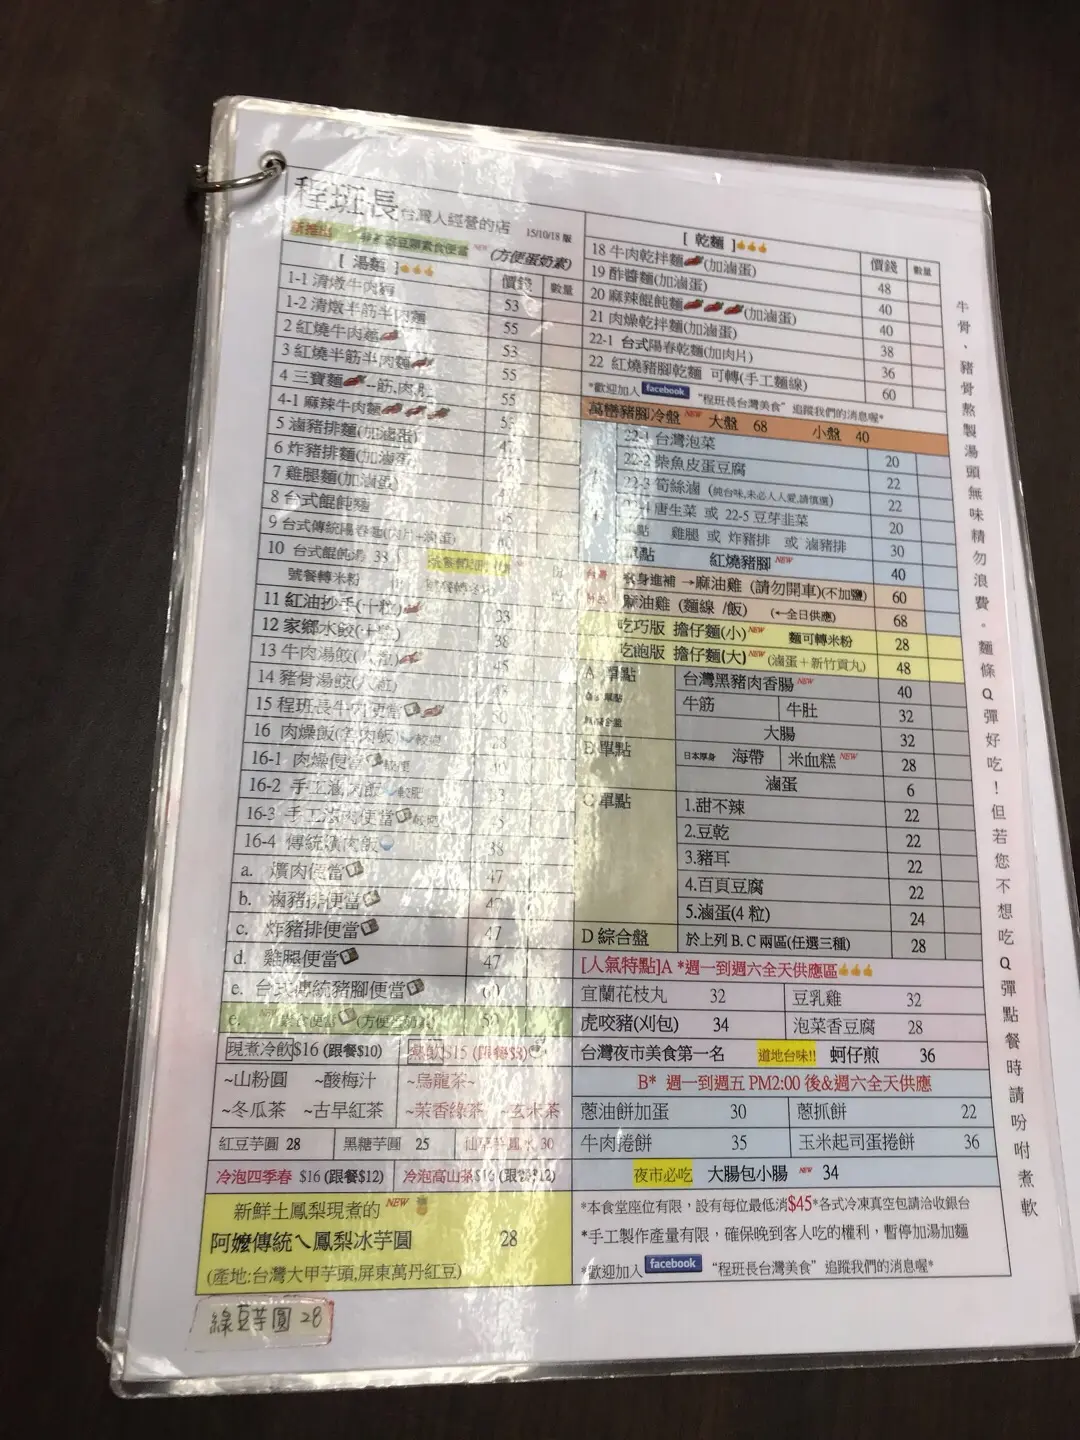 程班長 台灣人經營的店
15/10/18 版
新推出 素食便當 NEW (方便蛋奶素)
[ 湯麵 ] 價錢 數量
1-1 清燉牛肉麵 53
1-2 清燉半筋半肉麵 55
2 紅燒牛肉麵 53
3 紅燒半筋半肉麵 55
4 三寶麵--筋,肉, 55
4-1 麻辣牛肉麵
5 滷豬排麵(加滷蛋)
6 炸豬排麵(加滷蛋)
7 雞腿麵(加滷蛋)
8 台式餛飩麵
9 台式傳統陽春麵
10 台式餛飩湯 38
號餐轉米粉
11 紅油抄手(十粒) 33
12 家鄉水餃(十粒) 38
13 牛肉湯餃 45
14 豬骨湯餃
15 程班長牛肉便當
16 肉燥飯
16-1 肉燥便當
16-2 手工滷肉飯
16-3 手工滷肉便當
16-4 傳統爌肉飯 38
a. 爌肉便當 47
b. 滷豬排便當
c. 炸豬排便當 47
d. 雞腿便當 47
e. 台式傳統豬腳便當
e. NEW
現煮冷飲$16 (跟餐$10) 熱飲$15
~山粉圓 ~酸梅汁 ~烏龍茶~
~冬瓜茶 ~古早紅茶 ~茉香綠茶 ~玄米茶
紅豆芋圓 28 黑糖芋圓 25 30
冷泡四季春 $16 (跟餐$12) 冷泡高山茶$16 (跟餐$12)
新鮮土鳳梨現煮的 NEW
阿嬤傳統ㄟ鳳梨冰芋圓 28
(產地:台灣大甲芋頭,屏東萬丹紅豆)
綠豆芋圓 28
[ 乾麵 ] 價錢 數量
18 牛肉乾拌麵(加滷蛋) 48
19 酢醬麵(加滷蛋) 40
20 麻辣餛飩麵(加滷蛋) 40
21 肉燥乾拌麵(加滷蛋) 38
22-1 台式陽春乾麵(加肉片) 36
22 紅燒豬腳乾麵 可轉(手工麵線) 60
*歡迎加入 facebook "程班長台灣美食" 追蹤我們的消息喔*
萬巒豬腳冷盤 NEW 大盤 68 小盤 40
22-1 台灣泡菜 20
22-2 柴魚皮蛋豆腐 22
22-3 筍絲滷 (純台味,未必人人愛,請慎選) 22
唐生菜 或 22-5 豆芽韭菜 20
單點 雞腿 或 炸豬排 或 滷豬排 30
單點 紅燒豬腳 NEW 40
進補 →麻油雞 (請勿開車)(不加鹽) 60
麻油雞 (麵線 /飯) (←全日供應) 68
吃巧版 擔仔麵(小) NEW 麵可轉米粉 28
吃飽版 擔仔麵(大) NEW (滷蛋＋新竹貢丸) 48
A 單點 台灣黑豬肉香腸 NEW 40
牛筋 牛肚 32
大腸 32
B 單點 日本厚身 海帶 米血糕 NEW 28
滷蛋 6
C 單點 1.甜不辣 22
2.豆乾 22
3.豬耳 22
4.百頁豆腐 22
5.滷蛋(4 粒) 24
D 綜合盤 於上列 B. C 兩區(任選三種) 28
[人氣特點]A *週一到週六全天供應區
宜蘭花枝丸 32 豆乳雞 32
虎咬豬(刈包) 34 泡菜香豆腐 28
台灣夜市美食第一名 道地台味!! 蚵仔煎 36
B* 週一到週五 PM2:00 後&週六全天供應
蔥油餅加蛋 30 蔥抓餅 22
牛肉捲餅 35 玉米起司蛋捲餅 36
夜市必吃 大腸包小腸 NEW 34
*本食堂座位有限，設有每位最低消$45*各式冷凍真空包請洽收銀台
*手工製作產量有限，確保晚到客人吃的權利，暫停加湯加麵
*歡迎加入 facebook "程班長台灣美食" 追蹤我們的消息喔*
牛骨、豬骨熬製湯頭無味精勿浪費。麵條Q彈好吃！但若您不想吃Q彈點餐時請吩咐煮軟